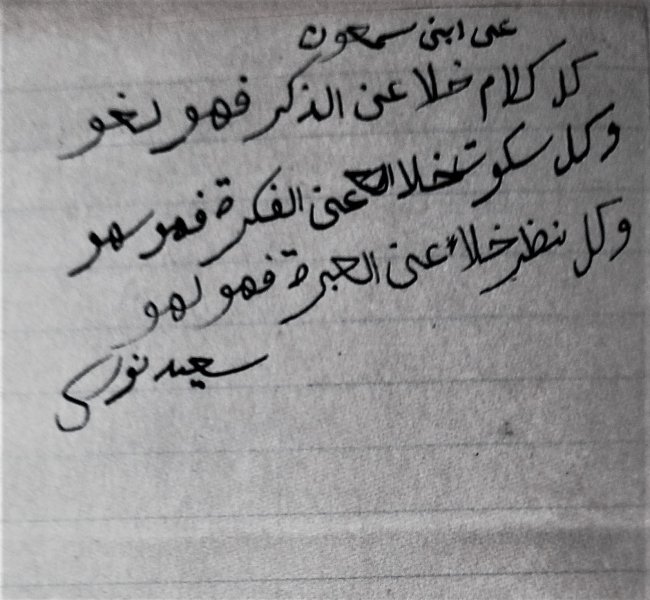 عن ابن سمعون
كل كلام خلا عن الذكر فهو لغو
وكل سكوت خلا عن الفكرة فهو سهو
وكل نظر خلا عن العبرة فهو لهو
سعيد نوى